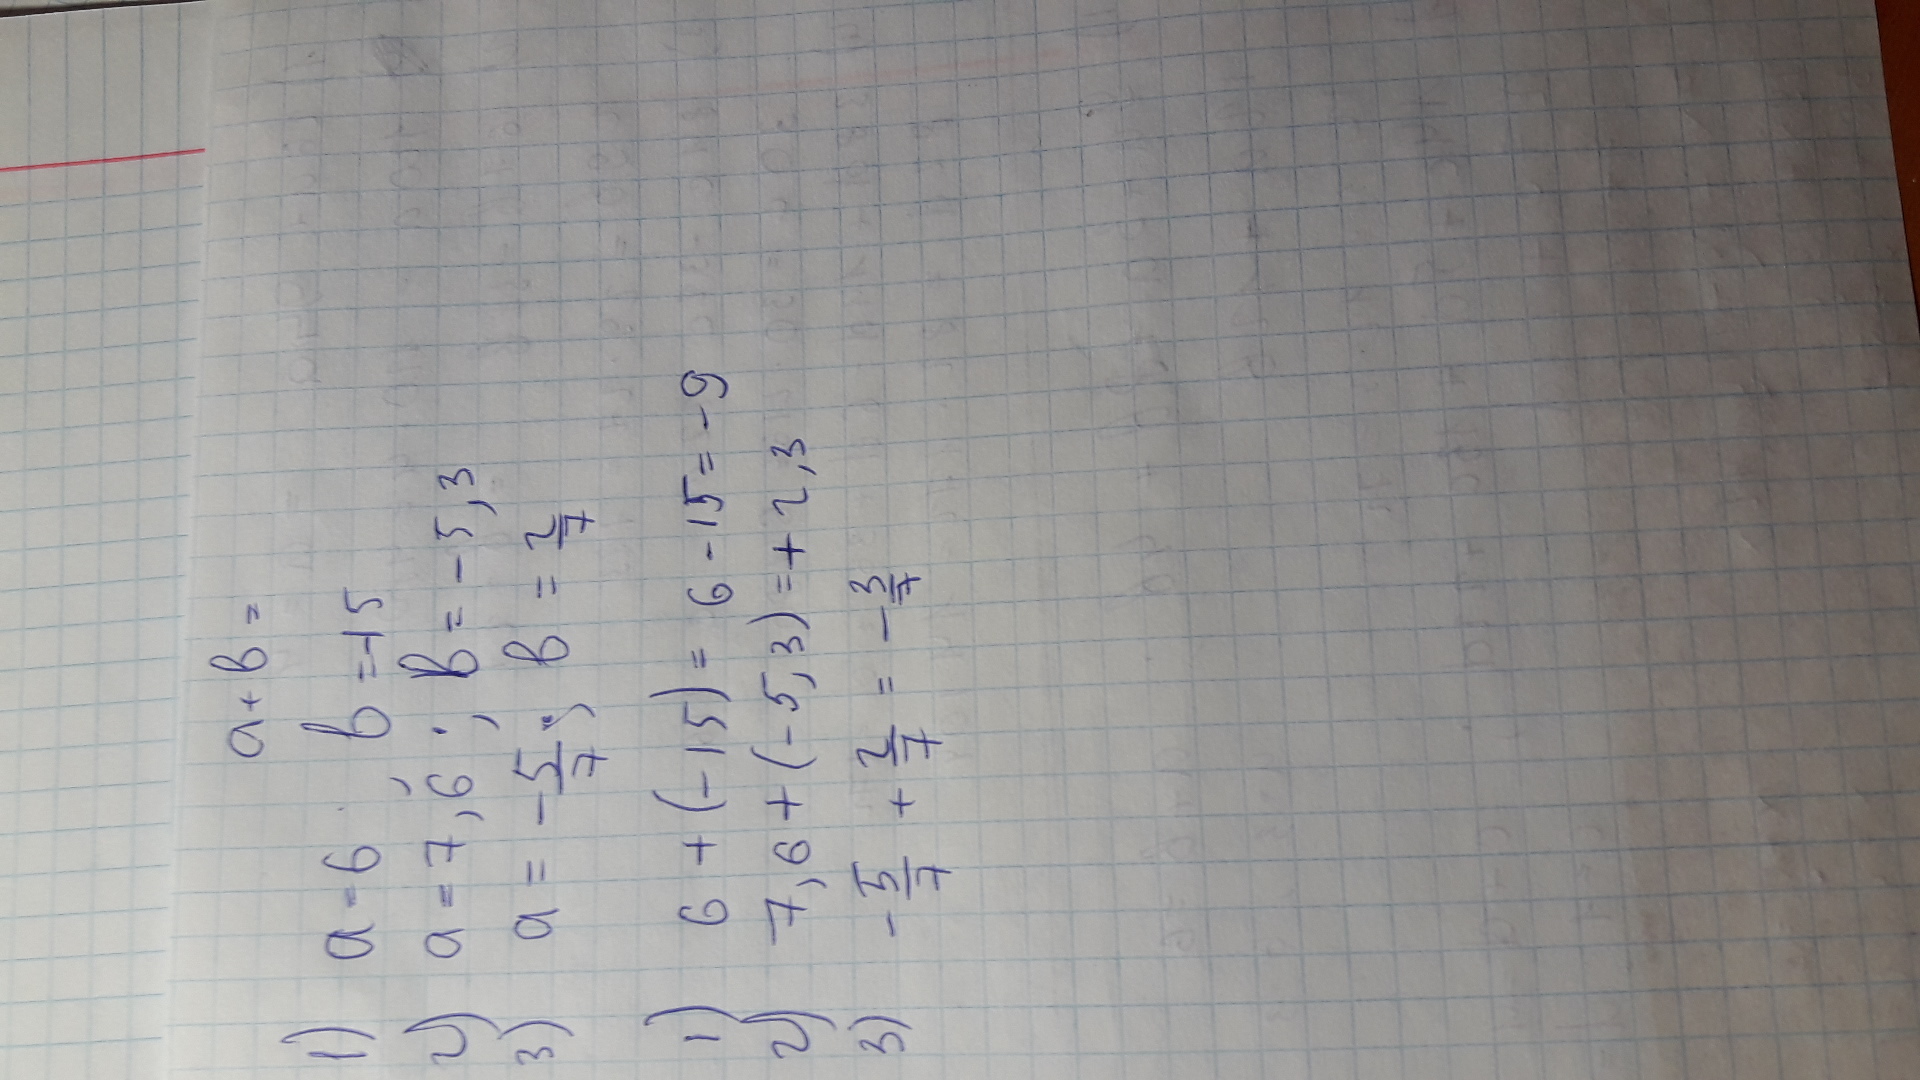 a+b=
1) a=6, b=-15
2) a=7,6; b=-5,3
3) a=-5/7; b=2/7
1) 6+(-15)=6-15=-9
2) 7,6+(-5,3)=+2,3
3) -5/7+2/7=-3/7